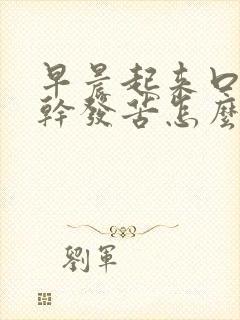 早晨起来口
幹發苦怎麼
劉軍